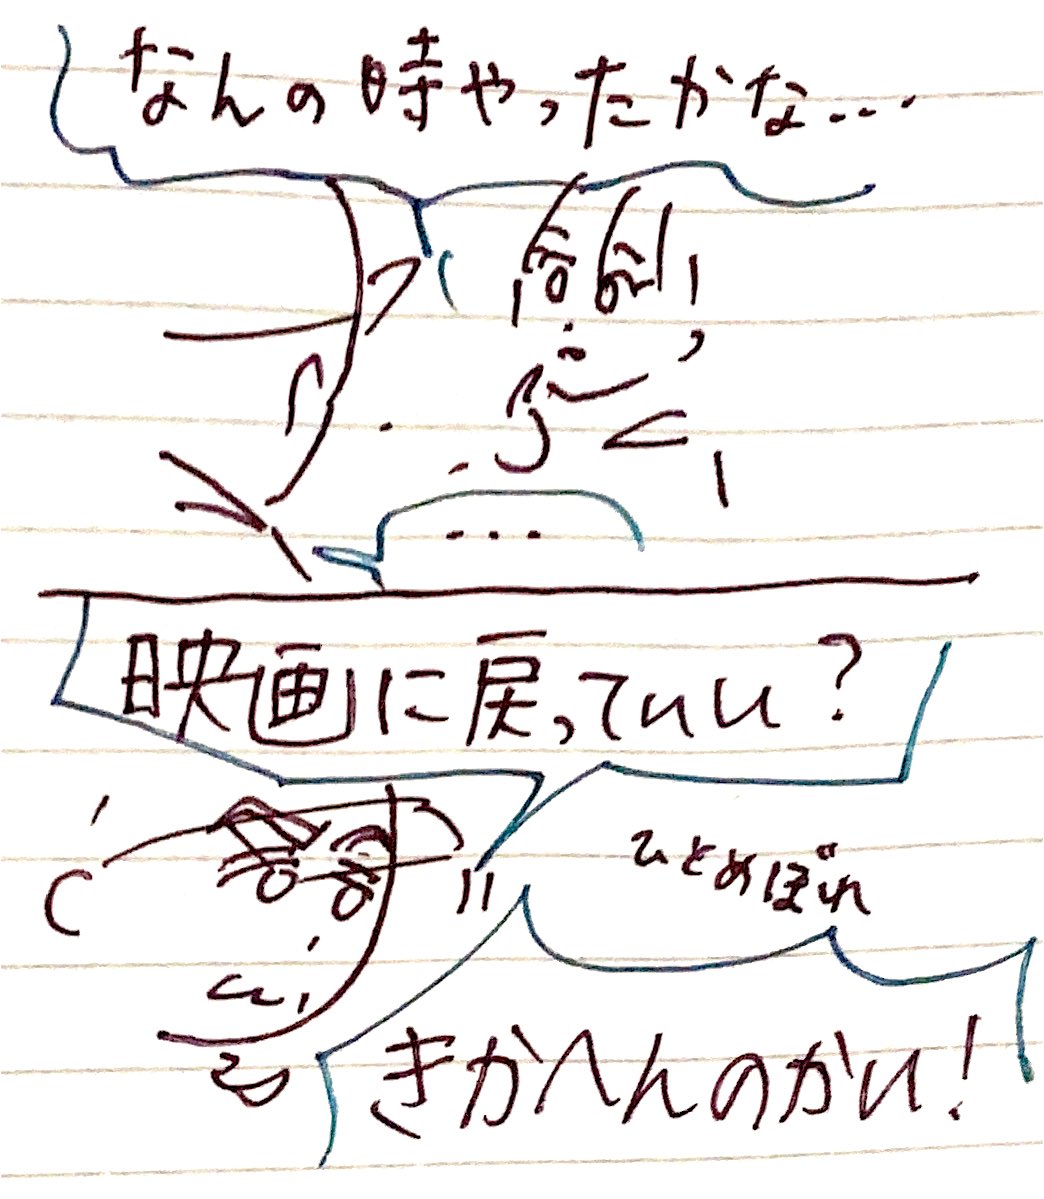 なんの時やったかな...
...
映画に戻っていい?
ひとめぼれ
きかへんのかい!